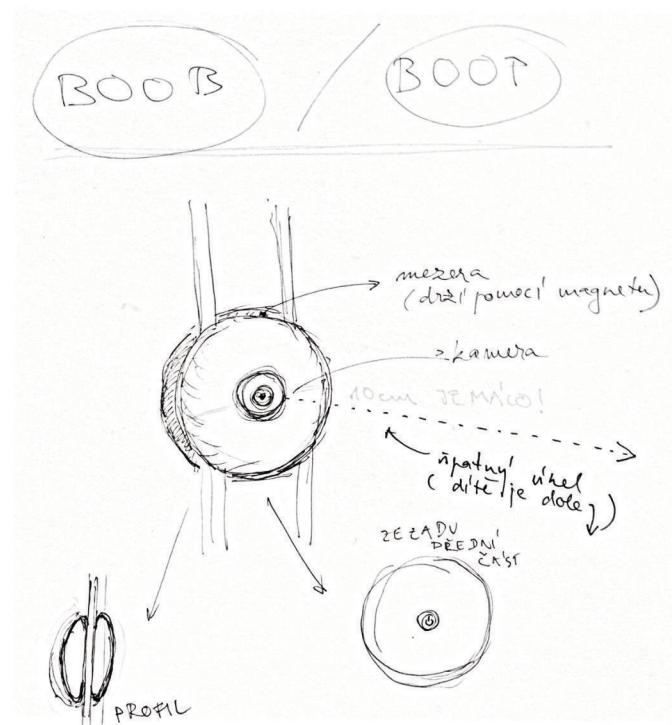 BOOB / BOOT
mezera
(drží pomocí magnetu)
kamera
10cm JE MÁLO!
špatný úhel
(dítě je dole)
ZEZADU
PŘEDNÍ
ČÁST
PROFIL